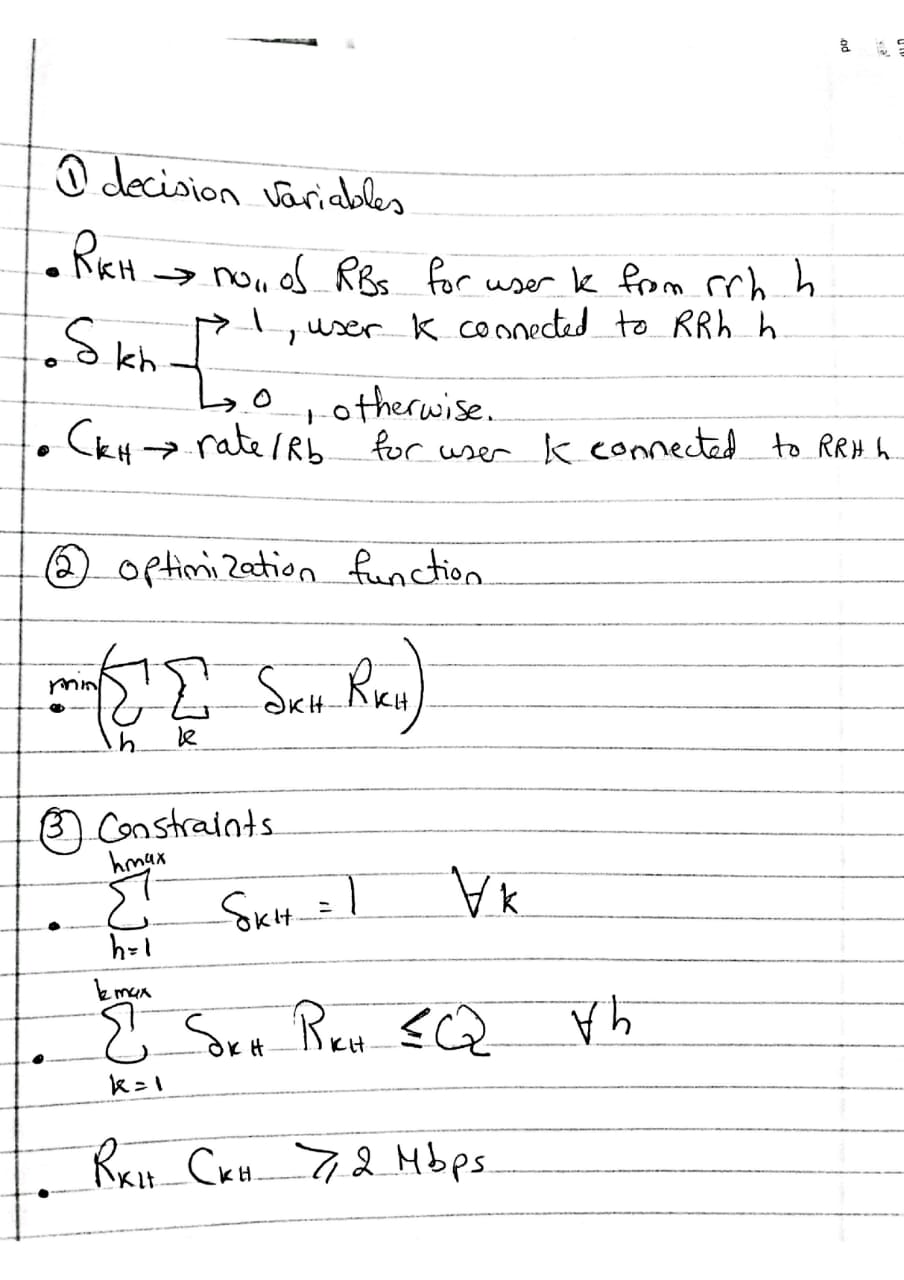 ① decision variables
• RKH → no,, of RBs for user k from rrh h
• δkh → 1, user k connected to RRh h
→ 0, otherwise.
• CKH → rate/Rb for user k connected to RRH h
② optimization function
• min(∑h ∑k δKH RKH)
③ Constraints
• ∑h=1^hmax δKH = 1 ∀k
• ∑k=1^kmax δKH RKH ≤ Q ∀h
• RKH CKH ≥ 2 Mbps